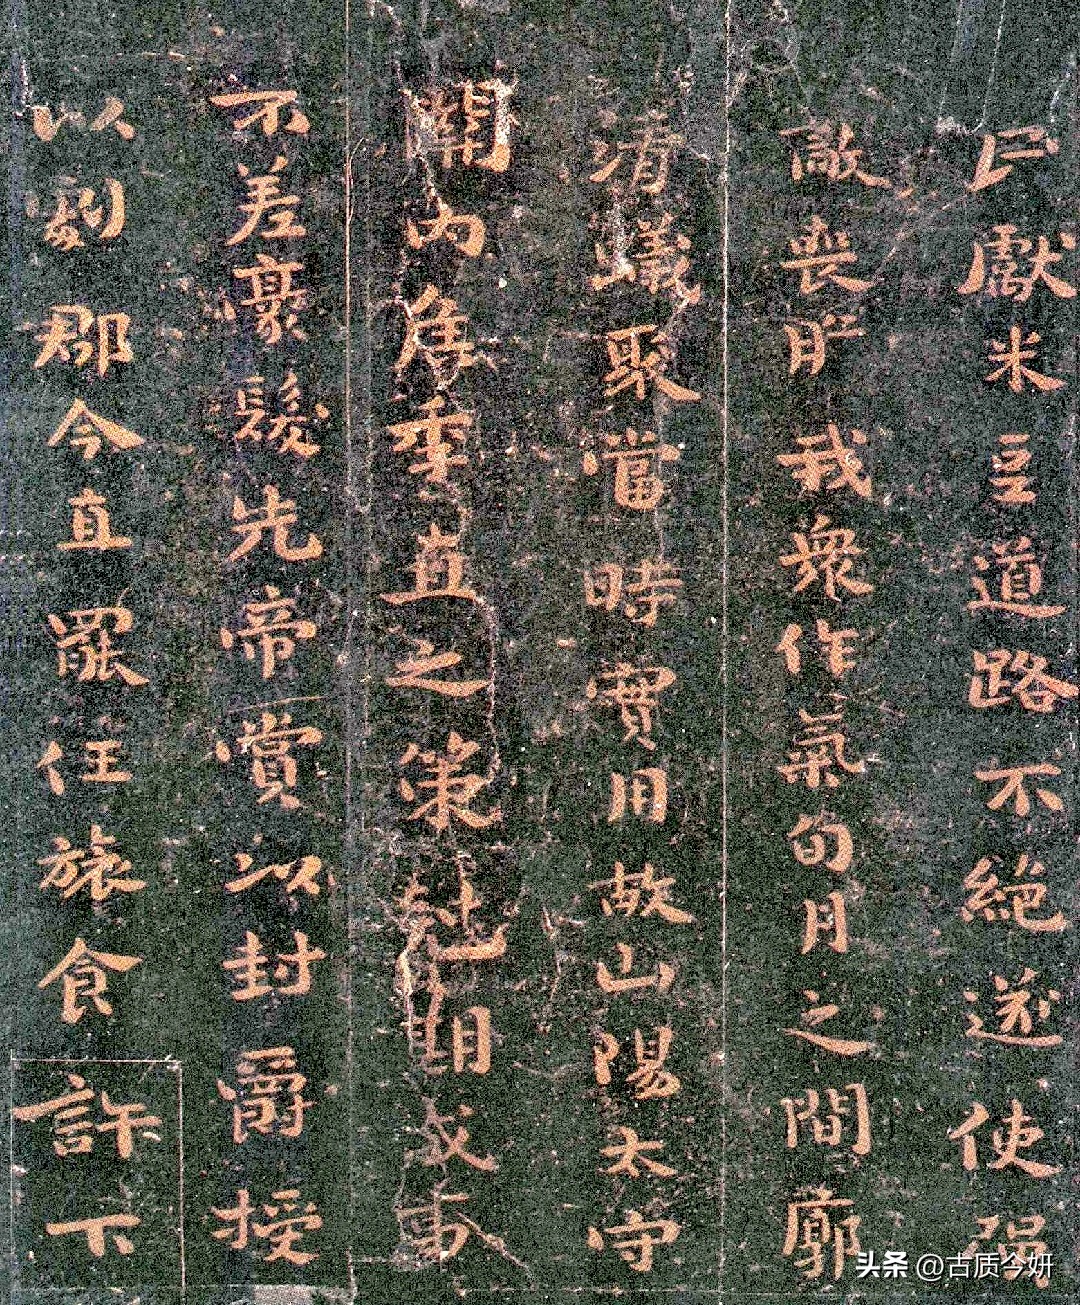 民獻米豆道路不絕遂使强
敵喪膽我衆作氣旬月之間廓
清蟻聚當時實用故山陽太守
關內侯季直之策尅期成事
不差豪髮先帝賞以封爵授
以劇郡今直罷任旅食許下
头条 @古质今妍